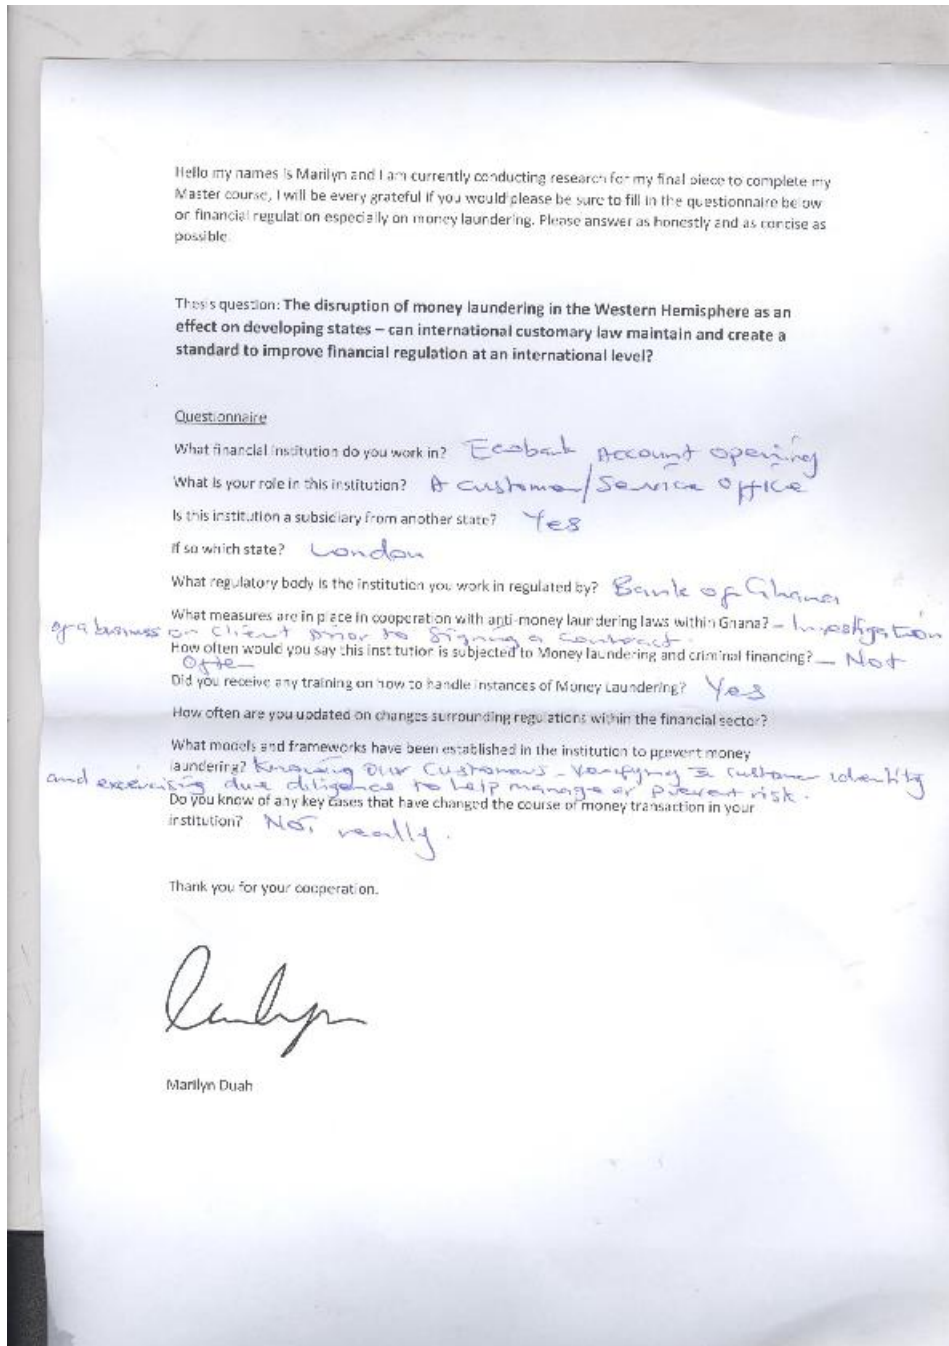 Hello my names is Marilyn and I am currently conducting research for my final piece to complete my
Master course, I will be every grateful if you would please be sure to fill in the questionnaire below
on financial regulation especially on money laundering. Please answer as honestly and as concise as
possible.
Thesis question: The disruption of money laundering in the Western Hemisphere as an
effect on developing states – can international customary law maintain and create a
standard to improve financial regulation at an international level?
Questionnaire
What financial institution do you work in? Ecobank Account opening
What is your role in this institution? A customer/Service office
Is this institution a subsidiary from another state? Yes
If so which state? London
What regulatory body is the institution you work in regulated by? Bank of Ghana
What measures are in place in cooperation with anti-money laundering laws within Ghana? – Investigation
of a business or client prior to signing a contract.
How often would you say this institution is subjected to Money laundering and criminal financing? – Not
Often
Did you receive any training on how to handle instances of Money Laundering? Yes
How often are you updated on changes surrounding regulations within the financial sector?
What models and frameworks have been established in the institution to prevent money
laundering? Knowing our Customers - Verifying customer identity
and exercising due diligence to help manage or prevent risk.
Do you know of any key cases that have changed the course of money transaction in your
institution? Not really.
Thank you for your cooperation.
Marilyn Duah